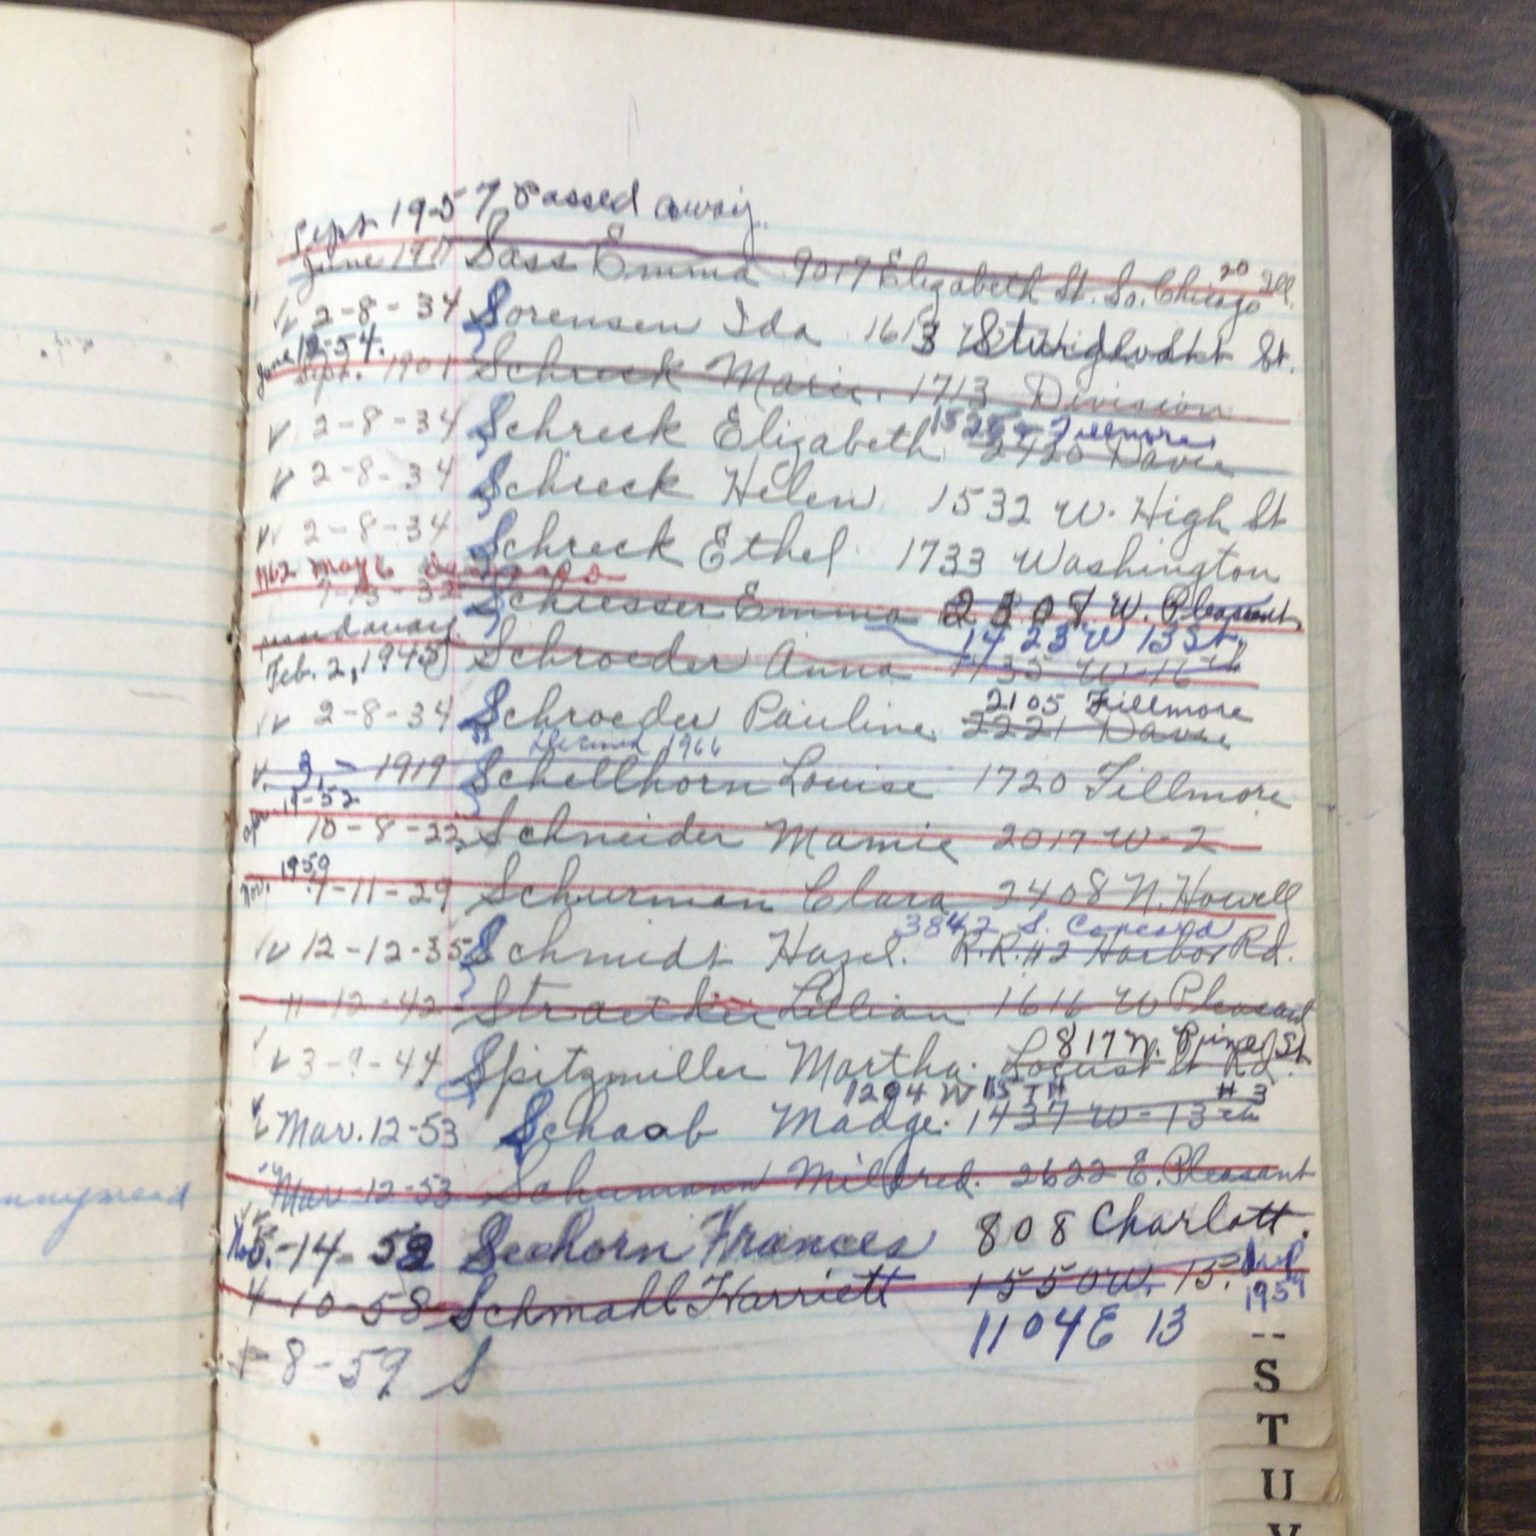 Sept 19-57 Passed away.
June 1917 Sass Emma 9017 Elizabeth St. So. Chicago 20 Ill.
v 2-8-34 Sorensen Ida 1613 Sturdevant St.
June 12-54.
Sept. 1901 Schreck Marie. 1713 Division
v 2-8-34 Schreck Elizabeth 2420 Davie
Fillmore
v 2-8-34 Schreck Helen 1532 W. High St
v 2-8-34 Schreck Ethel 1733 Washington
1962 May 6 Deceased
7-13-32 Schiesser Emma 2307 W. Pleasant
1423 W 13 St.
Feb. 2, 1943 Schroeder Anna 1435 W-16th
2105 Fillmore
v 2-8-34 Schroeder Pauline 2221 Davie
Deceased 1966
v 3, - 1919 Schellhorn Louise 1720 Fillmore
Apr. 19-52
10-8-22 Schneider Mamie 2017 W-2
Nov. 1959
4-11-29 Schurman Clara 2408 N. Howell
3842 S. Concord
v 12-12-35 Schmidt Hazel. R.R.#2 Harbor Rd.
11-12-42 Lillian 1616 W Pleasant
817 N. Pine St
v 3-9-44 Spitzmiller Martha. Locust St Rd.
1204 W 15TH #3
v Mar. 12-53 Schaab Madge. 1437 W-13th
Mar 12-53 Schumann Mildred. 2622 E. Pleasant
5.-14-58 Seehorn Frances 808 Charlott.
4-10-58 Schmahl Harriett 1550 W. 15.
1959
1104 E 13
1-8-59 S
--
S
T
U
V